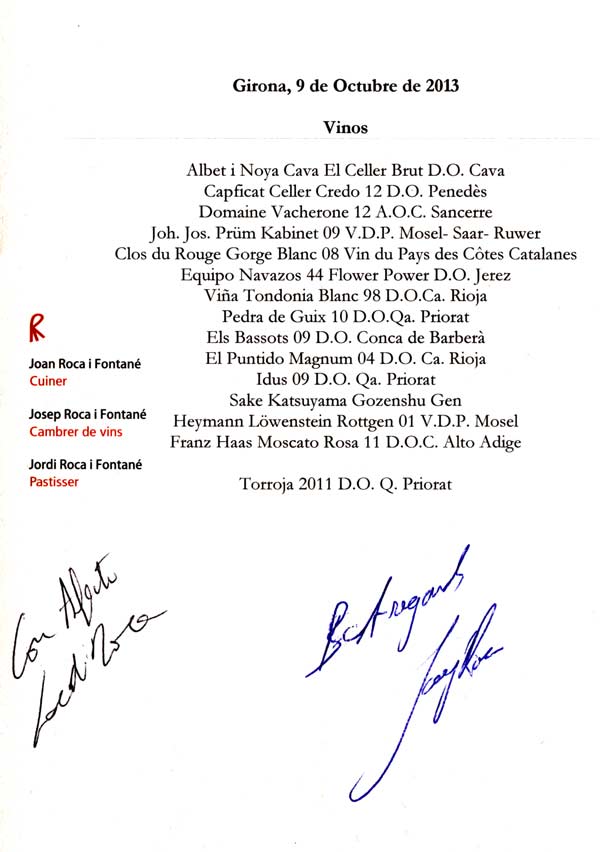 Girona, 9 de Octubre de 2013
Vinos
Albet i Noya Cava El Celler Brut D.O. Cava
Capficat Celler Credo 12 D.O. Penedès
Domaine Vacherone 12 A.O.C. Sancerre
Joh. Jos. Prüm Kabinet 09 V.D.P. Mosel- Saar- Ruwer
Clos du Rouge Gorge Blanc 08 Vin du Pays des Côtes Catalanes
Equipo Navazos 44 Flower Power D.O. Jerez
Viña Tondonia Blanc 98 D.O.Ca. Rioja
Pedra de Guix 10 D.O.Qa. Priorat
Els Bassots 09 D.O. Conca de Barberà
El Puntido Magnum 04 D.O. Ca. Rioja
Idus 09 D.O. Qa. Priorat
Sake Katsuyama Gozenshu Gen
Heymann Löwenstein Rottgen 01 V.D.P. Mosel
Franz Haas Moscato Rosa 11 D.O.C. Alto Adige
Torroja 2011 D.O. Q. Priorat
R
Joan Roca i Fontané
Cuiner
Josep Roca i Fontané
Cambrer de vins
Jordi Roca i Fontané
Pastisser
Con Afecto
Jordi Roca
Best regards
Roca